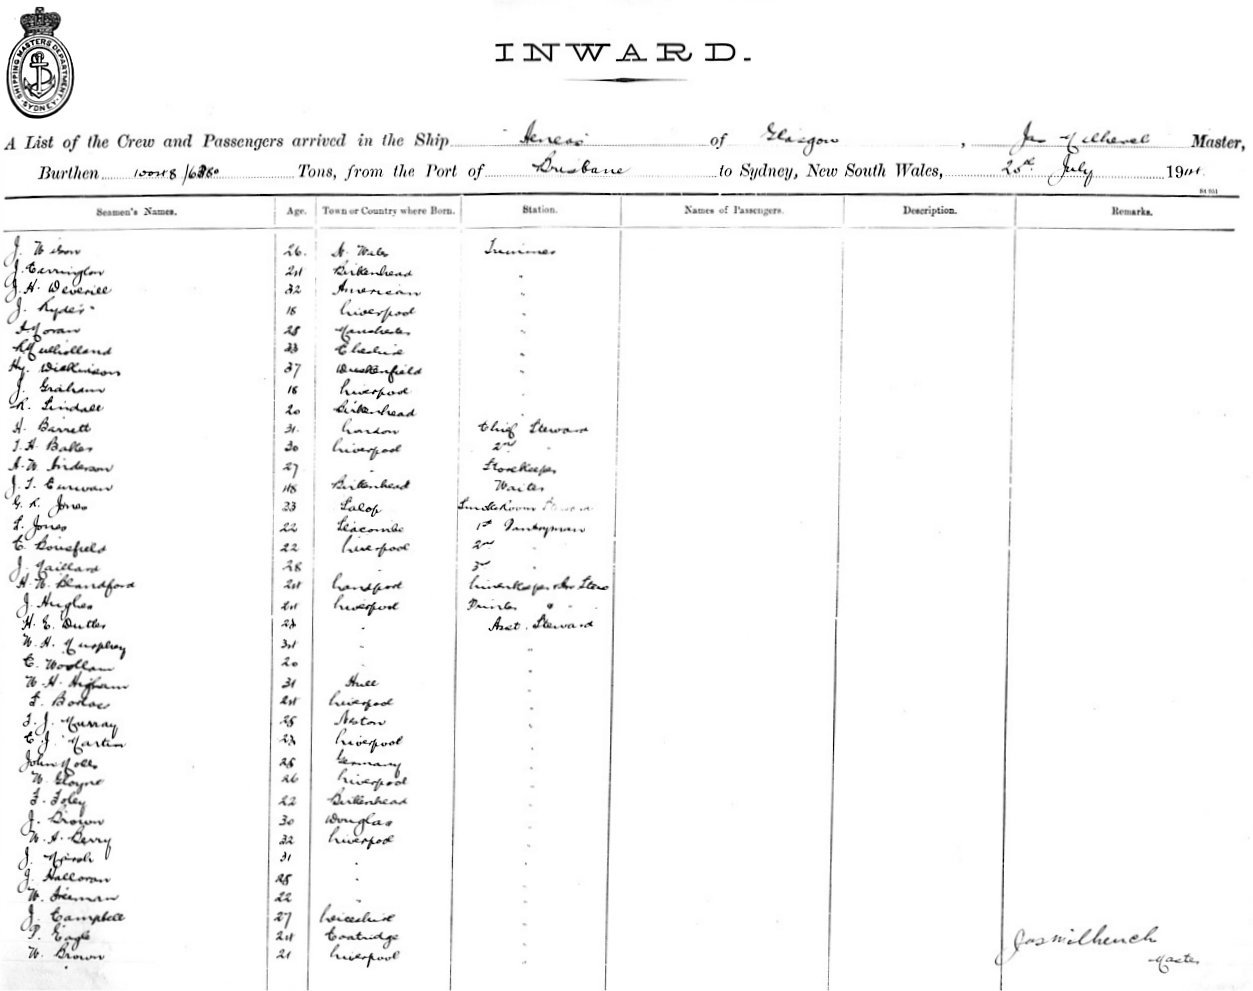 SHIPPING MASTERS DEPARTMENT SYDNEY
INWARD.
A List of the Crew and Passengers arrived in the Ship Aeneas of Glasgow, Master,
Burthen Tons, from the Port of Brisbane to Sydney, New South Wales, July 19
Seamen's Names. Age. Town or Country where Born. Station. Names of Passengers. Description. Remarks.
J. 26. N. Wales Trimmer
J. Carrington Birkenhead "
J. H. Deverill 32 American "
J. Ryder 18 Liverpool "
Moran 28 Manchester "
Mulholland 33 Cheshire "
Hy. Dickinson 37 Duckenfield "
J. Graham 18 Liverpool "
R. Lindall 20 Birkenhead
H. Barrett 31. London Chief Steward
T. H. Bates 30 Liverpool 2nd "
A. W. Anderson 27 " Storekeeper
J. T. Curwan Birkenhead Waiter
G. R. Jones 23 Salop Smoke Room Steward
L. Jones 22 Seacombe 1st Pantryman
C. Bousfield 22 Liverpool 2nd "
J. Maillard 28 " 3rd "
H. W. Blandford Linenkeeper
J. Hughes Liverpool "
H. E. Butler 23 " Asst. Steward
W. H. Murphy " "
C. Woollam 20 " "
W. H. Higham 31 Hull "
F. Liverpool "
T. J. Murray 25 Neston "
C. J. Martin 23 Liverpool "
John 25 Germany "
W. Gloyne 26 Liverpool "
F. Foley 22 Birkenhead "
J. Brown 30 Douglas "
W. A. Berry 32 Liverpool "
J. Marsh 31 " "
J. Halloran 28 " "
W. Freeman 22 " "
J. Campbell 27 "
P. Eagle Coatridge "
W. Brown 21 Liverpool "
Jas McIlhench
Master